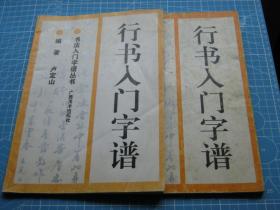 行书入门字谱
书法入门字谱丛书
编著 卢定山
广西美术出版社
行书入门字谱